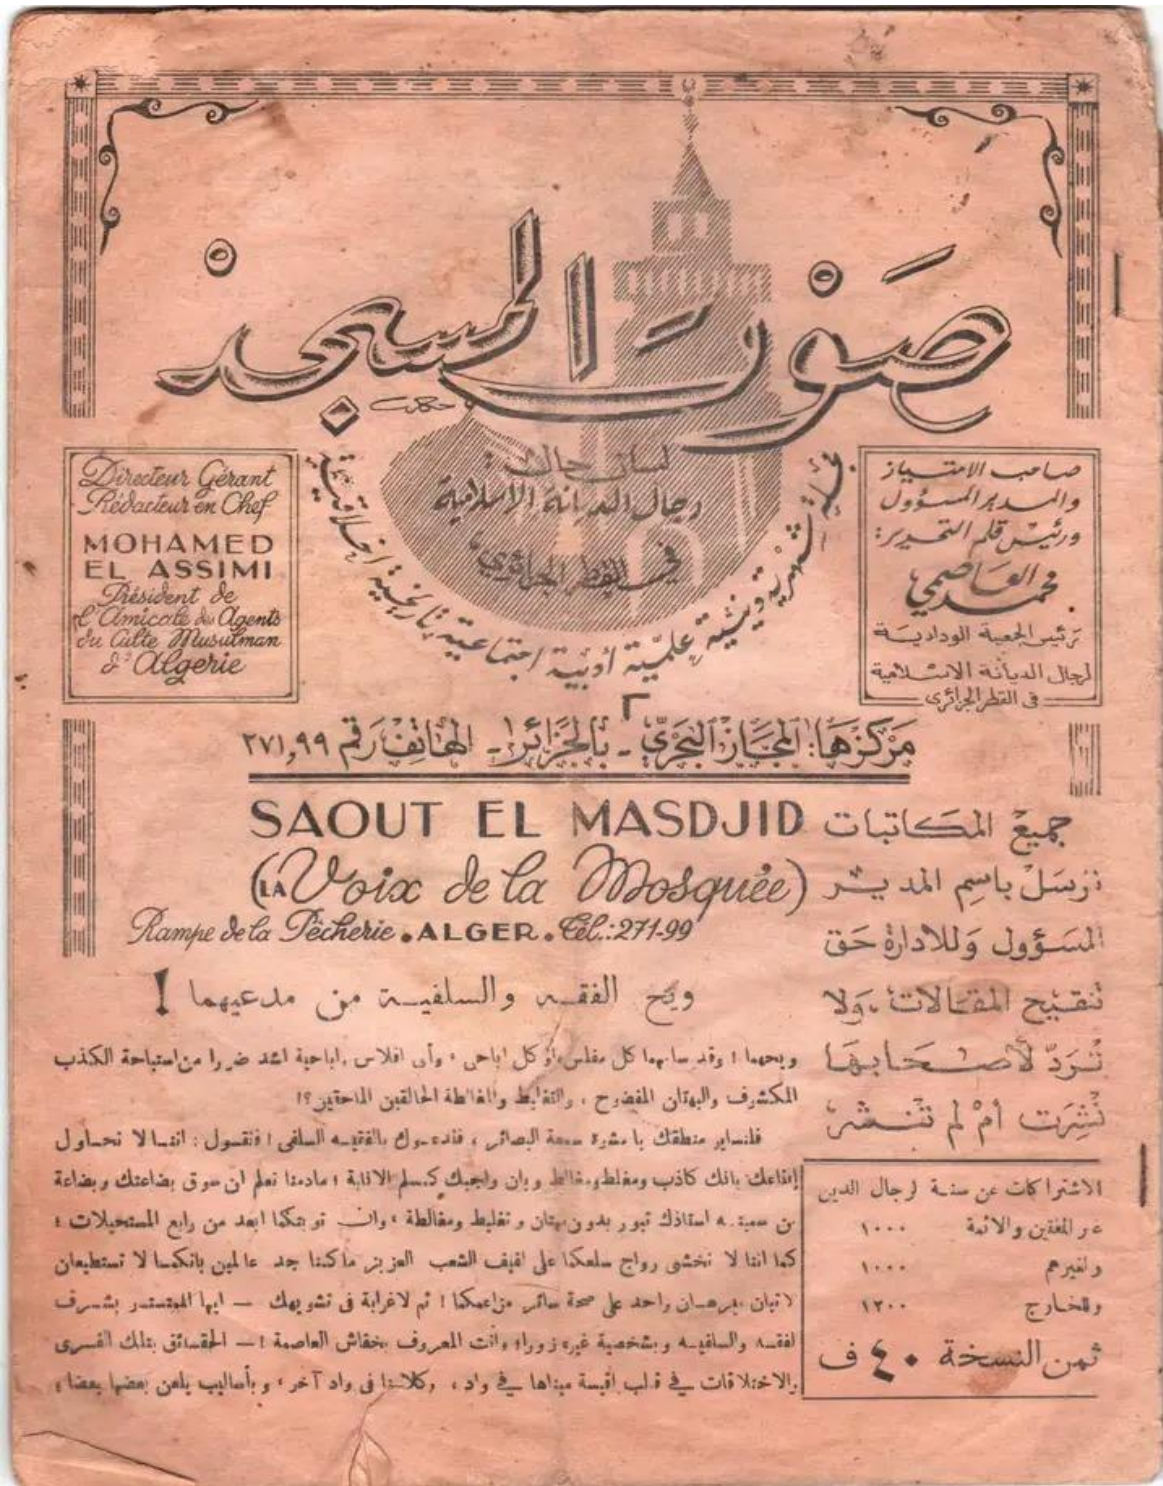 صوت المسجد
لسان حال:
رجال الديانة الاسلامية
في القطر الجزائري
مجلة شهرية دينية علمية أدبية اجتماعية تاريخية اخلاقية
صاحب الامتياز
والمدير المسؤول
ورئيس قلم التحرير:
محمد العاصمي
رئيس الجمعية الودادية
لرجال الديانة الاسلامية
في القطر الجزائري
Directeur Gérant
Rédacteur en Chef
MOHAMED
EL ASSIMI
Président de
l'Amicale des Agents
du Culte Musulman
d'Algerie
٢
مركزها: المجاز البحري - بالجزائر - الهاتف رقم ٢٧١,٩٩
SAOUT EL MASDJID
(LA Voix de la Mosquée)
Rampe de la Pêcherie . ALGER . Tél.: 271-99
جميع المكاتبات
ترسل باسم المدير
المسؤول وللادارة حق
تنقيح المقالات، ولا
تُرَدّ لأصحابها
نُشِرَت أمْ لم تنشر
الاشتراكات عن سنة لرجال الدين
غير المفتين والائمة ١٠٠٠
ولغيرهم ١٠٠٠
وللخارج ١٢٠٠
ثمن النسخة ٤٠ ف
ويح الفقه والسلفية من مدعيهما !
ويحهما ! وقد سامهما كل مفلس او كل اباحي ، وأى افلاس واباحية اشد ضررا من استباحة الكذب
المكشوف والبهتان المفضوح ، والتغليط والمغالطة الحالقين الماحقين ؟!
فلنساير منطقك يا مشوه سمعة البصائر ، فلندعوك بالفقيه السلفى ! فنقول : اننا لا نحاول
إقناعك بانك كاذب ومغلط ومغالط وبان واجبك كمسلم الانابة ؛ مادمنا نعلم ان سوق بضاعتك وبضاعة
من سميته استاذك تبور بدون بهتان وتغليط ومغالطة ، وان توبتكما ابعد من رابع المستحيلات ؛
كما اننا لا نخشى رواج سلعكما على لفيف الشعب العزيز ماكنا جد عالمين بانكما لا تستطيعان
لاتيان ببرهان واحد على صحة سائر مزاعمكما ! ثم لاغرابة فى تشويهك — ايها المتستر بشرف
لفقه والسلفية وبشخصية غيره زورا؛ وانت المعروف بخفاش العاصمة !— الحقائق بتلك الفسرى
والاختلاقات في قلب اقيسة مبناها في واد ، وكلامنا فى واد آخر ، وبأساليب يلعن بعضها بعضا ؛